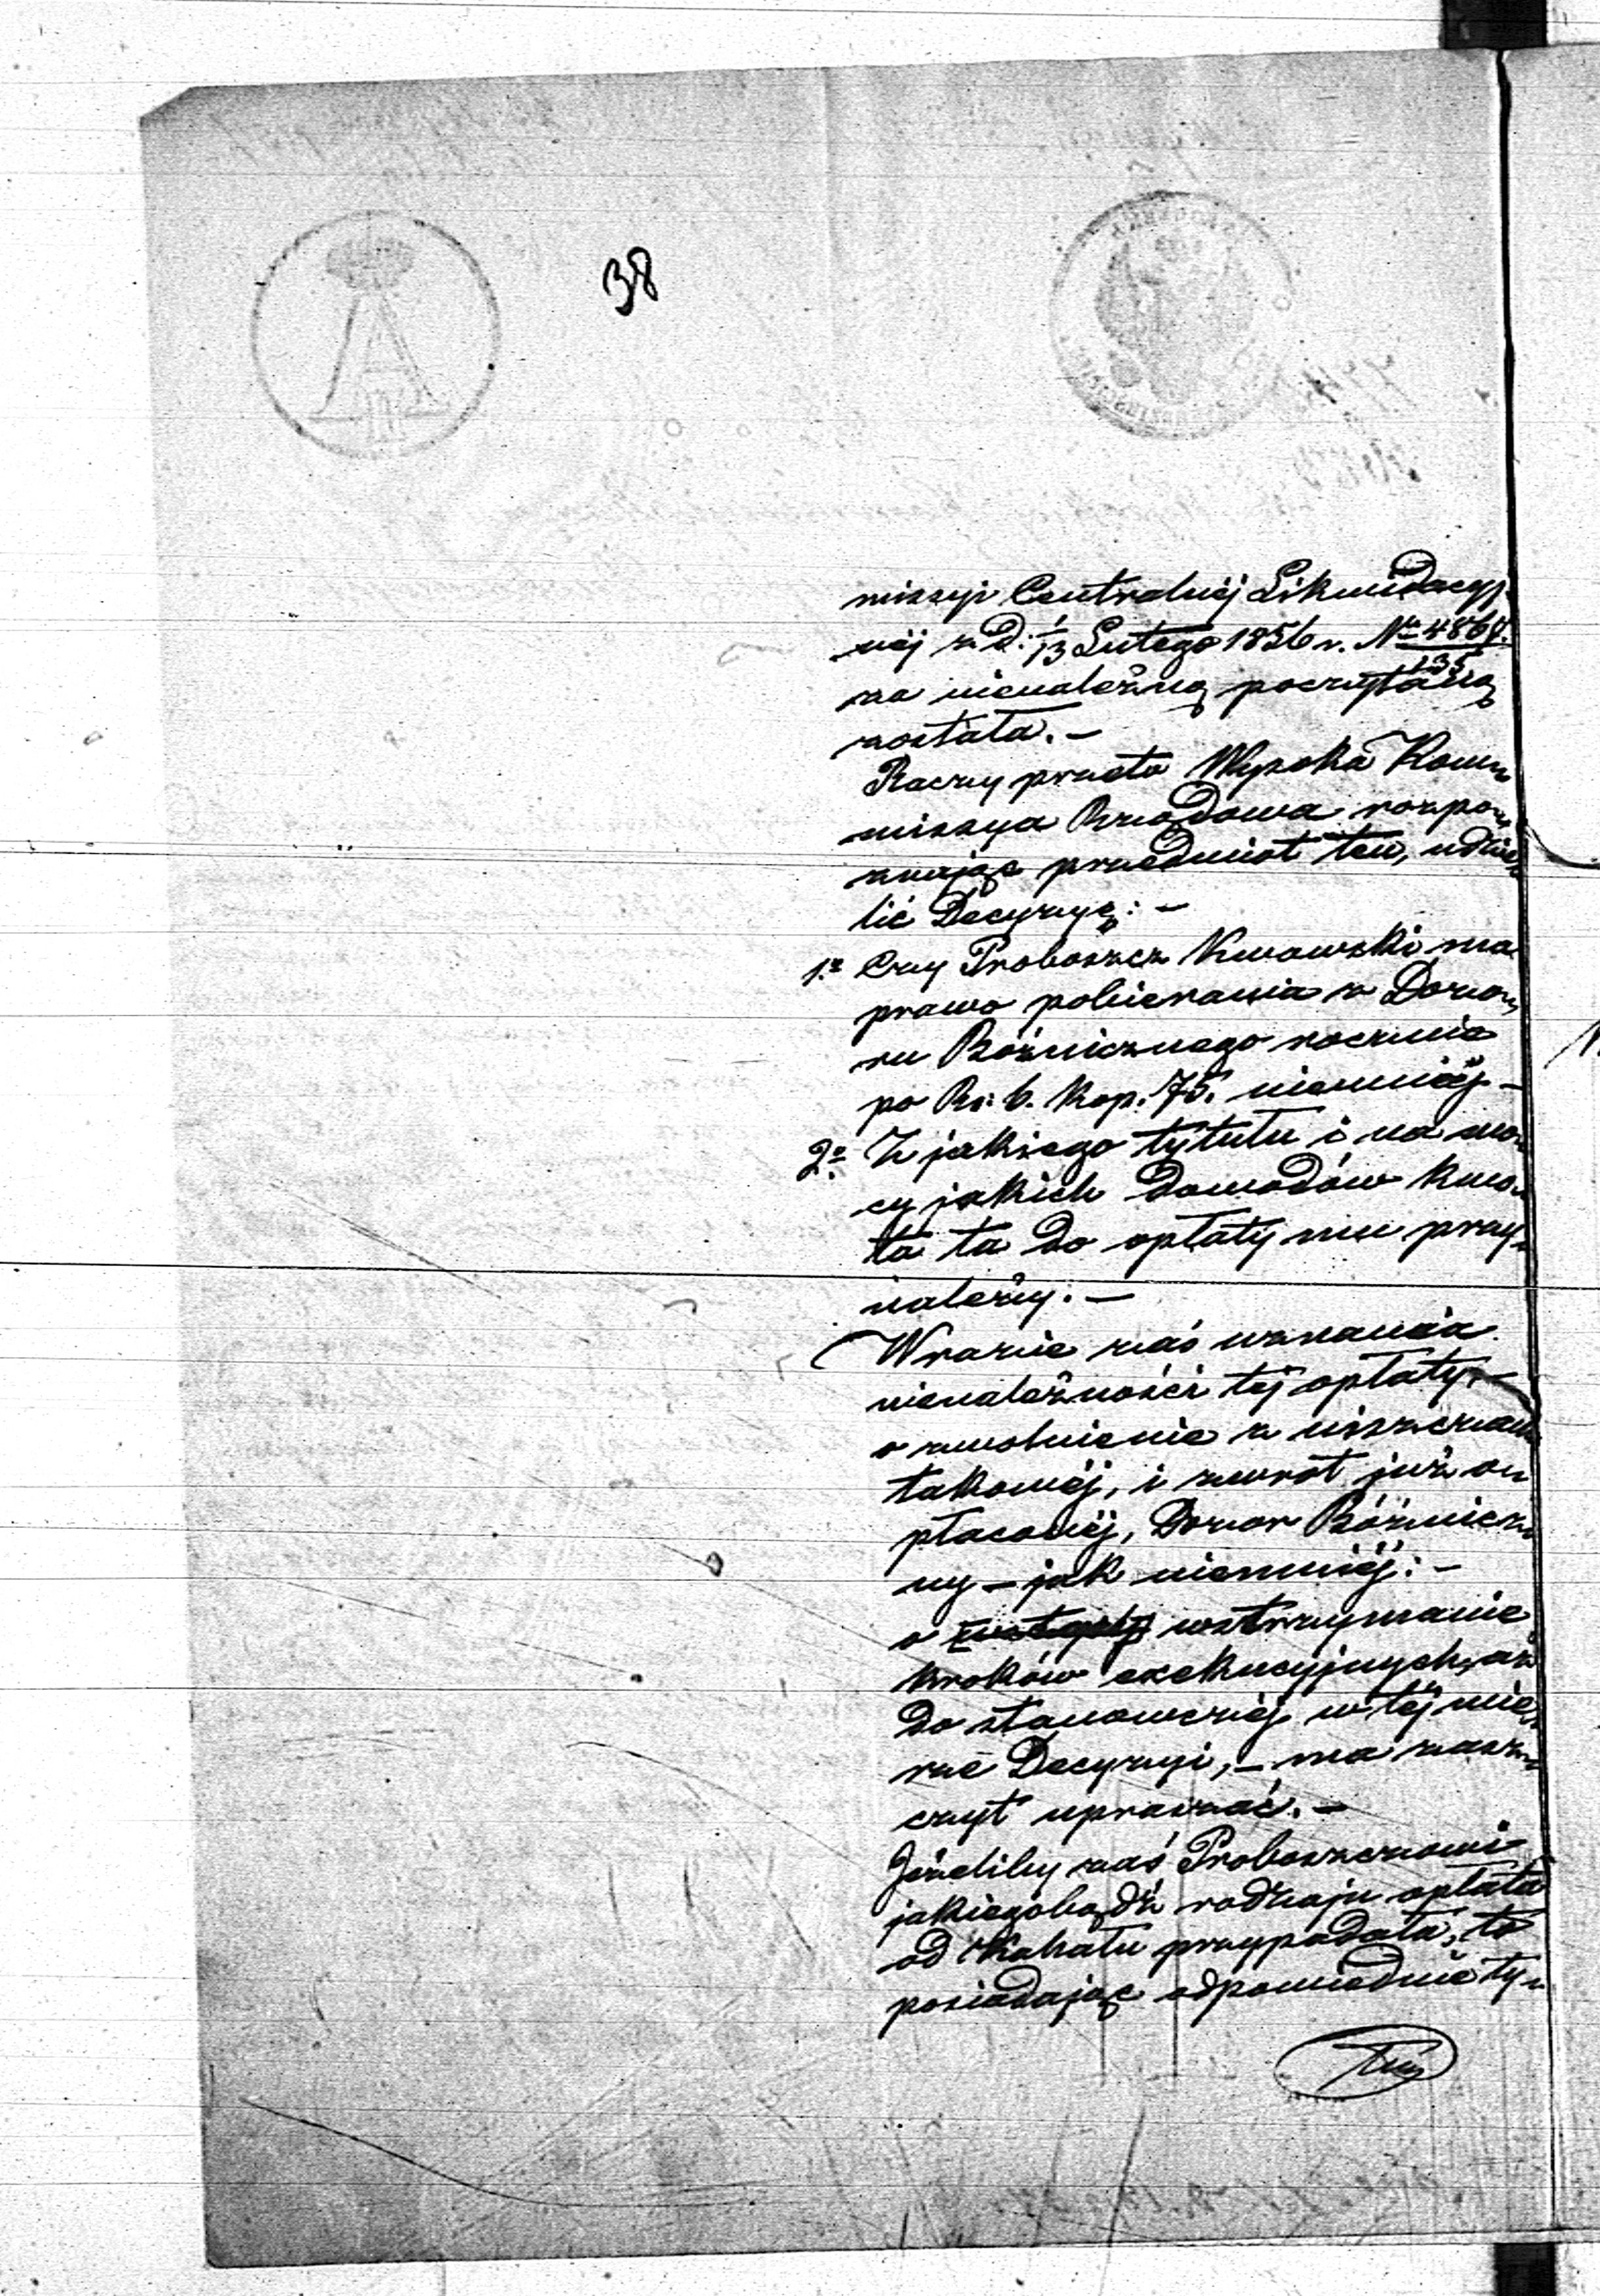 38
missyi Centralnéj Likwidacyj
néj z D. 1/13 Lutego 1856 r. No 4868/135
za nienależną poczytaną
została. —
Raczy przeto Wysoka Kom
missya Rządowa rozpo
znając przedmiot ten, udzie
lić Decyzyę: —
1o Czy Proboszcz Kwowski ma
prawo pobierania z Dozo
ru Bóżnicznego rocznie
po Rs. 6. kop. 75. niemniéj —
2o Z jakiego tytułu i na mo
cy jakich dowodów kwo
ta ta do opłaty mu przy
należy. —
W razie zaś uznania
nienależności téj opłaty, —
o uwolnienie z uiszczania
takowéj, i zwrot już o
płaconéj, Dozor Bóżnicz
ny — jak niemniéj: —
o wstrzymanie
kroków exekucyjnych, aż
do stanowczéj w téj mie
rze Decyzyi, — ma zasz
czyt upraszać. —
Jeżeliby zaś Proboszczowi
jakiegobądź rodzaju opłata
od Kahału przypadała, to
posiadając odpowiednie ty